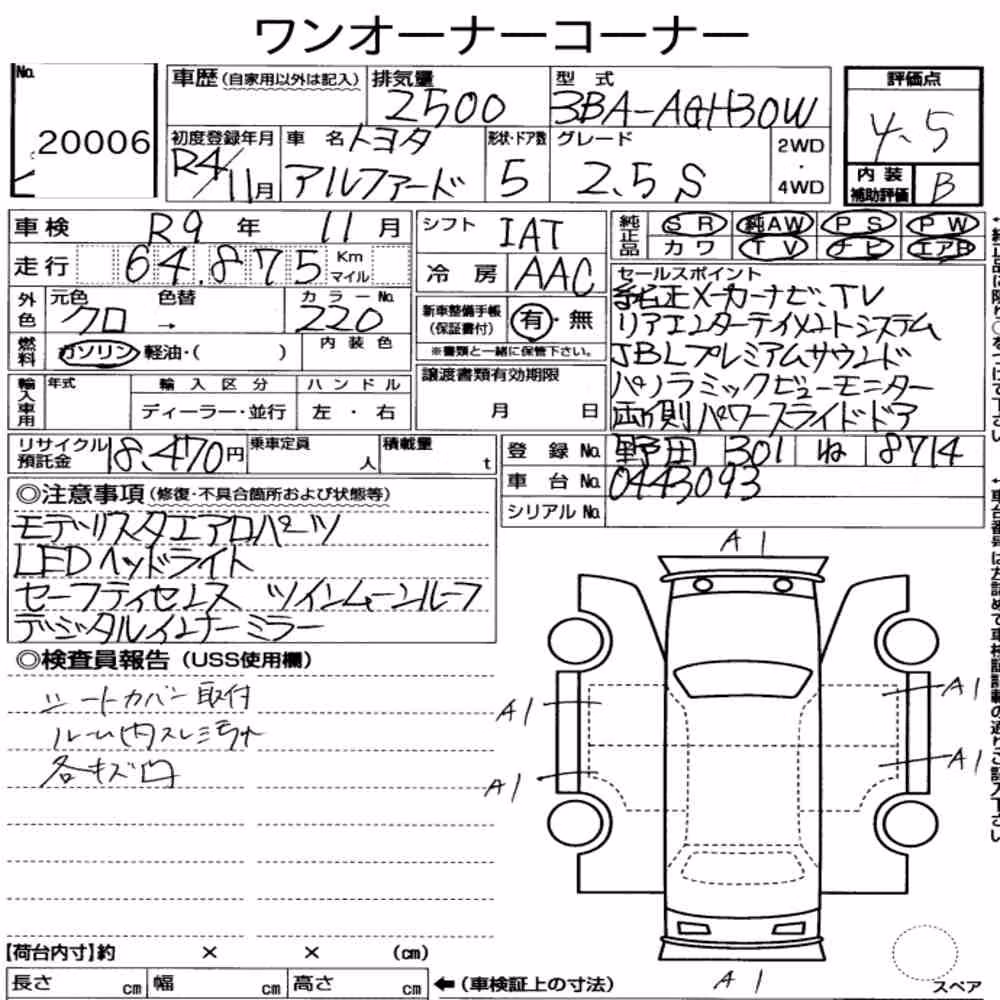 ワンオーナーコーナー
No. 20006
車歴(自家用以外は記入) 排気量 2500 型式 3BA-AGH30W 評価点 4.5
初度登録年月 R4/11月 車名 トヨタ アルファード 形状・ドア数 5 グレード 2.5 S 2WD・4WD 内装補助評価 B
車検 R9年 11月 シフト IAT 純正品 SR 純AW PS PW
カワ TV ナビ エアB
走行 64,875 Km マイル 冷房 AAC
外色 元色 クロ → 色替 カラーNo. 220 内装色
新車整備手帳(保証書付) 有・無
※書類と一緒に保管下さい。
燃料 ガソリン 軽油・( )
セールスポイント
純正メーカーナビ、TV
リアエンターテイメントシステム
JBLプレミアムサウンド
パノラミックビューモニター
両側パワースライドドア
輸入車用 年式 輸入区分 ハンドル
ディーラー・並行 左・右
譲渡書類有効期限 月 日
リサイクル預託金 18,470円 乗車定員 人 積載量 t
登録No. 野田 301 ね 8714
車台No. 0443093
シリアルNo.
◎注意事項(修復・不具合箇所および状態等)
モデリスタエアロパーツ
LEDヘッドライト
セーフティセンス ツインムーンルーフ
デジタルインナーミラー
◎検査員報告(USS使用欄)
シートカバー取付
ルーム内スレ ミラー
各キズ凹
A1
A1
A1
A1
A1
A1
【荷台内寸】約 × × (cm)
長さ cm 幅 cm 高さ cm ←(車検証上の寸法)
スペア